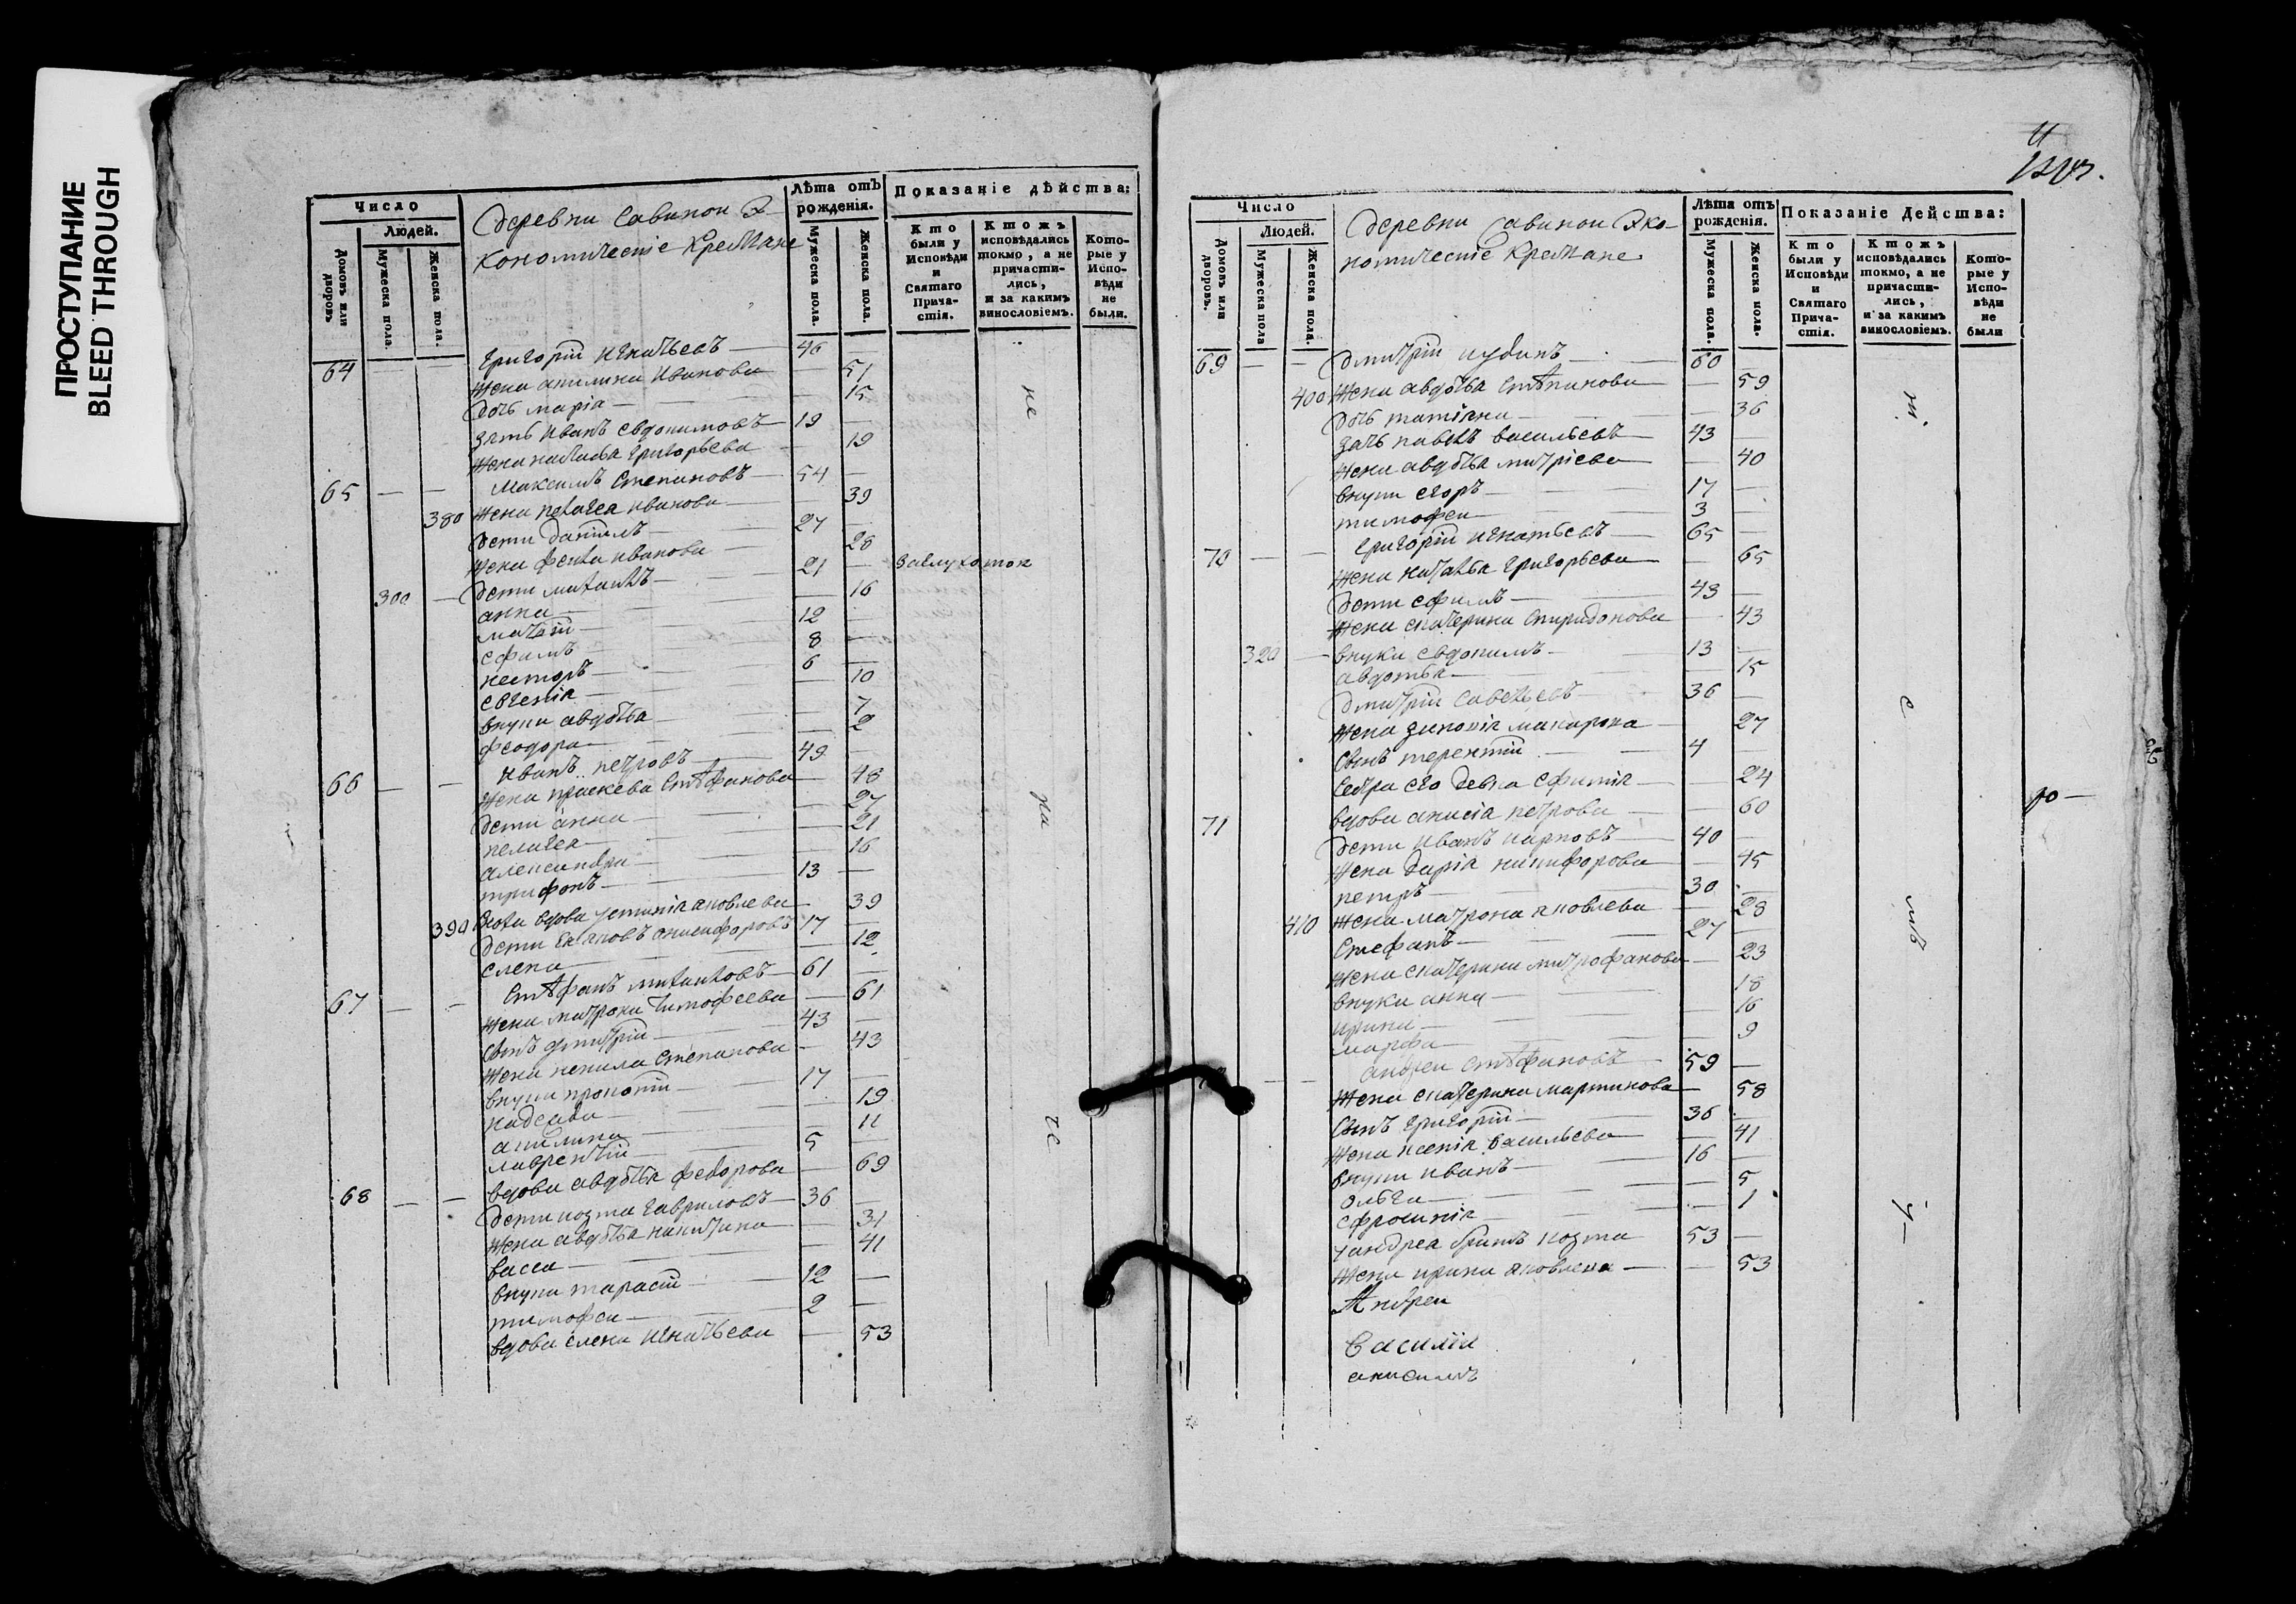 ПРОСТУПАНИЕ
BLEED THROUGH
Число
Людей.
Домовъ или дворовъ
Мужеска пола.
Женска пола.
деревни Савинои Э-
кономическіе крестяне
Лѣта отъ рожденія.
Мужеска пола.
Женска пола.
Показаніе дѣйства:
Кто были у Исповѣди и Святаго Прича-стія.
Ктожъ исповѣдались токмо, а не причасти-лись, и за какимъ винословіемъ.
Кото-рые у Испо-вѣди не были.
64 — — григорій игнатьевъ — 46 —
жена акилина иванова — 51
дочь марія — 15
зять иванъ евдокимовъ — 19 —
жена наталья григорьева — 19
65 — — максимъ степановъ — 54 —
380 жена пелагея иванова — 39
дети даніилъ — 27 —
жена фекла иванова — 28
300 — дети михаилъ — 21 —
анна — 16
матвѣй — 12
ефимъ — 8 —
несторъ — 6 —
евгенія — 10
внуки авдотья — 7
феодора — 2
66 — — иванъ петровъ — 49 —
жена праскева стѣфанова — 48
дети анна — 27
пелагея — 21
александра — 16
трифонъ — 13 —
390 вдова устинія яковлева — 39
дети яковъ онисифоровъ 17 —
елена — 12
67 — — стѣфанъ михаиловъ — 61 —
жена матрона тимофеева — 61
сынъ дмитрій — 43 —
жена ненила степанова — 43
внуки прокопій — 17 —
надежда — 19
акилина — 11
лаврентій — 5 —
68 — — вдова авдотья федорова — 69
дети козма гавриловъ — 36 —
жена авдотья никитина — 31
васса — 41
внуки тарасій — 12 —
тимофеи — 2 —
вдова елена игнатьева — 53
не
ка
Число
Людей.
Домовъ или дворовъ.
Мужеска пола
Женска пола.
деревни Савинои Эко-
номическіе крестяне
Лѣта отъ рожденія.
Мужеска пола.
Женска пола.
Показаніе Дейсшва:
Кто были у Исповѣди и Святаго Прича-стія.
Ктожъ исповѣдались токмо, а не причасти-лись, и за какимъ винословіемъ.
Кото-рые у Испо-вѣди не были
69 — — дмитрій — 60 —
400 жена авдотья стѣпанова — 59
дочь татіяна — 36
зять павелъ васильевъ — 43 —
жена авдотья митріева — 40
внуки егоръ — 17 —
тимофеи — 3 —
70 — — григорій игнатьевъ — 65 —
жена наталья григорьева — 65
дети ефимъ — 43 —
жена екатерина спиридонова — 43
320 — внуки евдокимъ — 13 —
авдотья — 15
дмитрій савельевъ — 36 —
жена зиновія макарова — 27
сынъ терентій — 4 —
сестра его девка ефимія — 24
71 вдова анисія петрова — 60
дети иванъ карповъ — 40 —
жена дарія никифорова — 45
петръ — 30 —
410 жена матрона яковлева — 28
стефанъ — 27 —
жена екатерина митрофанова — 23
внуки анна — 18
ирина — 16
марфа — 9
— — андреи стѣфановъ — 59 —
жена екатерина мартинова — 58
сынъ григорій — 36 —
жена ксенія васильева — 41
внуки иванъ — 16 —
ольга — 5
ефросинія — 1
у андрея братъ козма 53 —
жена ирина яковлева — 53
Андреи
Василіи
анисимъ